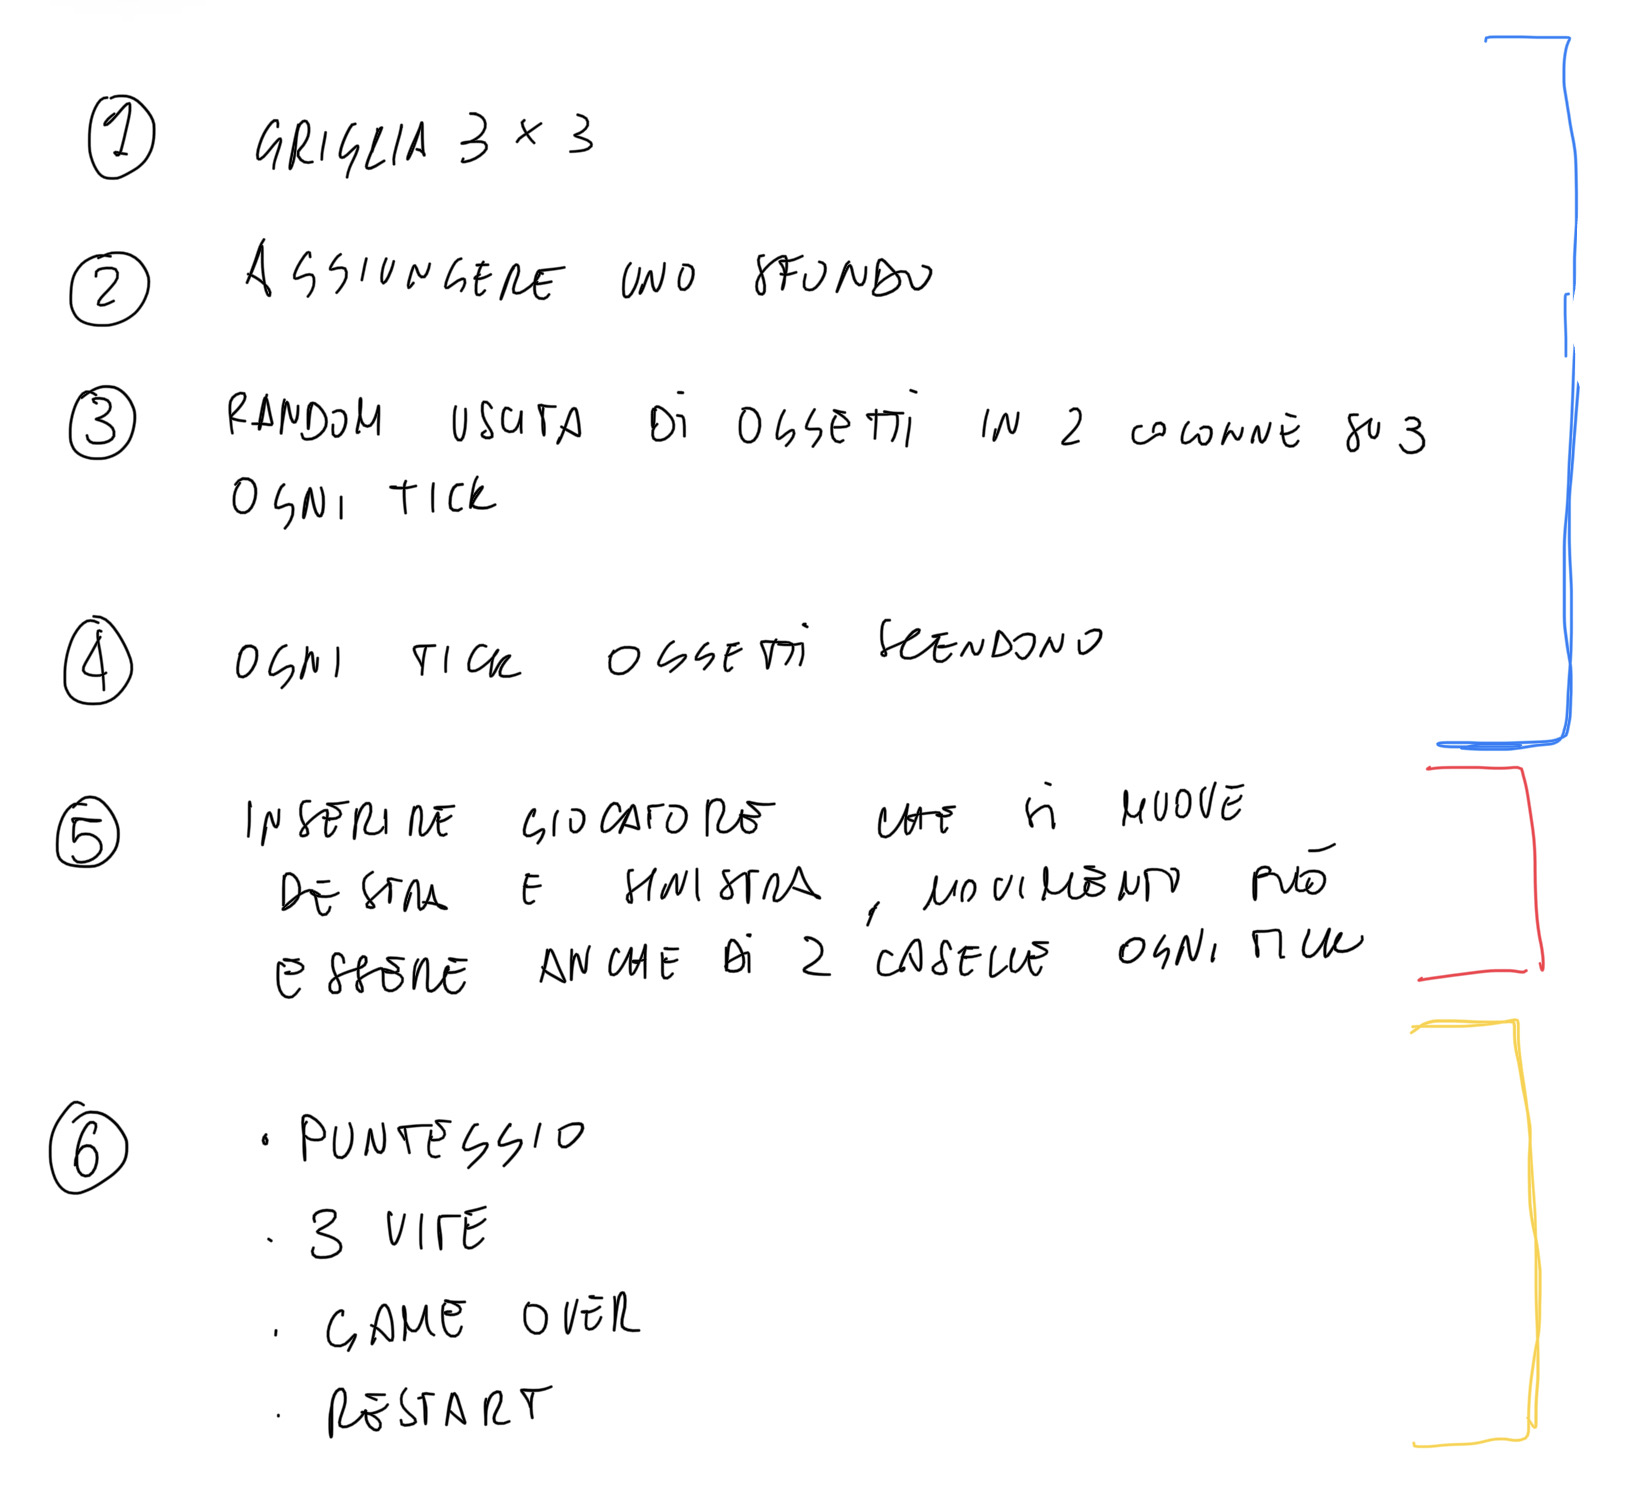 1 GRIGLIA 3 × 3
2 AGGIUNGERE UNO SFONDO
3 RANDOM USCITA Di OGGETTi IN 2 COLONNE SU 3
OGNI TICK
4 OGNI TICK OGGETTi SCENDONO
5 INSERIRE GIOCATORE CHE Si MUOVE
DESTRA E SINISTRA, MOVIMENTO PUÒ
ESSERE ANCHE Di 2 CASELLE OGNI TICK
6 • PUNTEGGIO
• 3 VITE
• GAME OVER
• RESTART